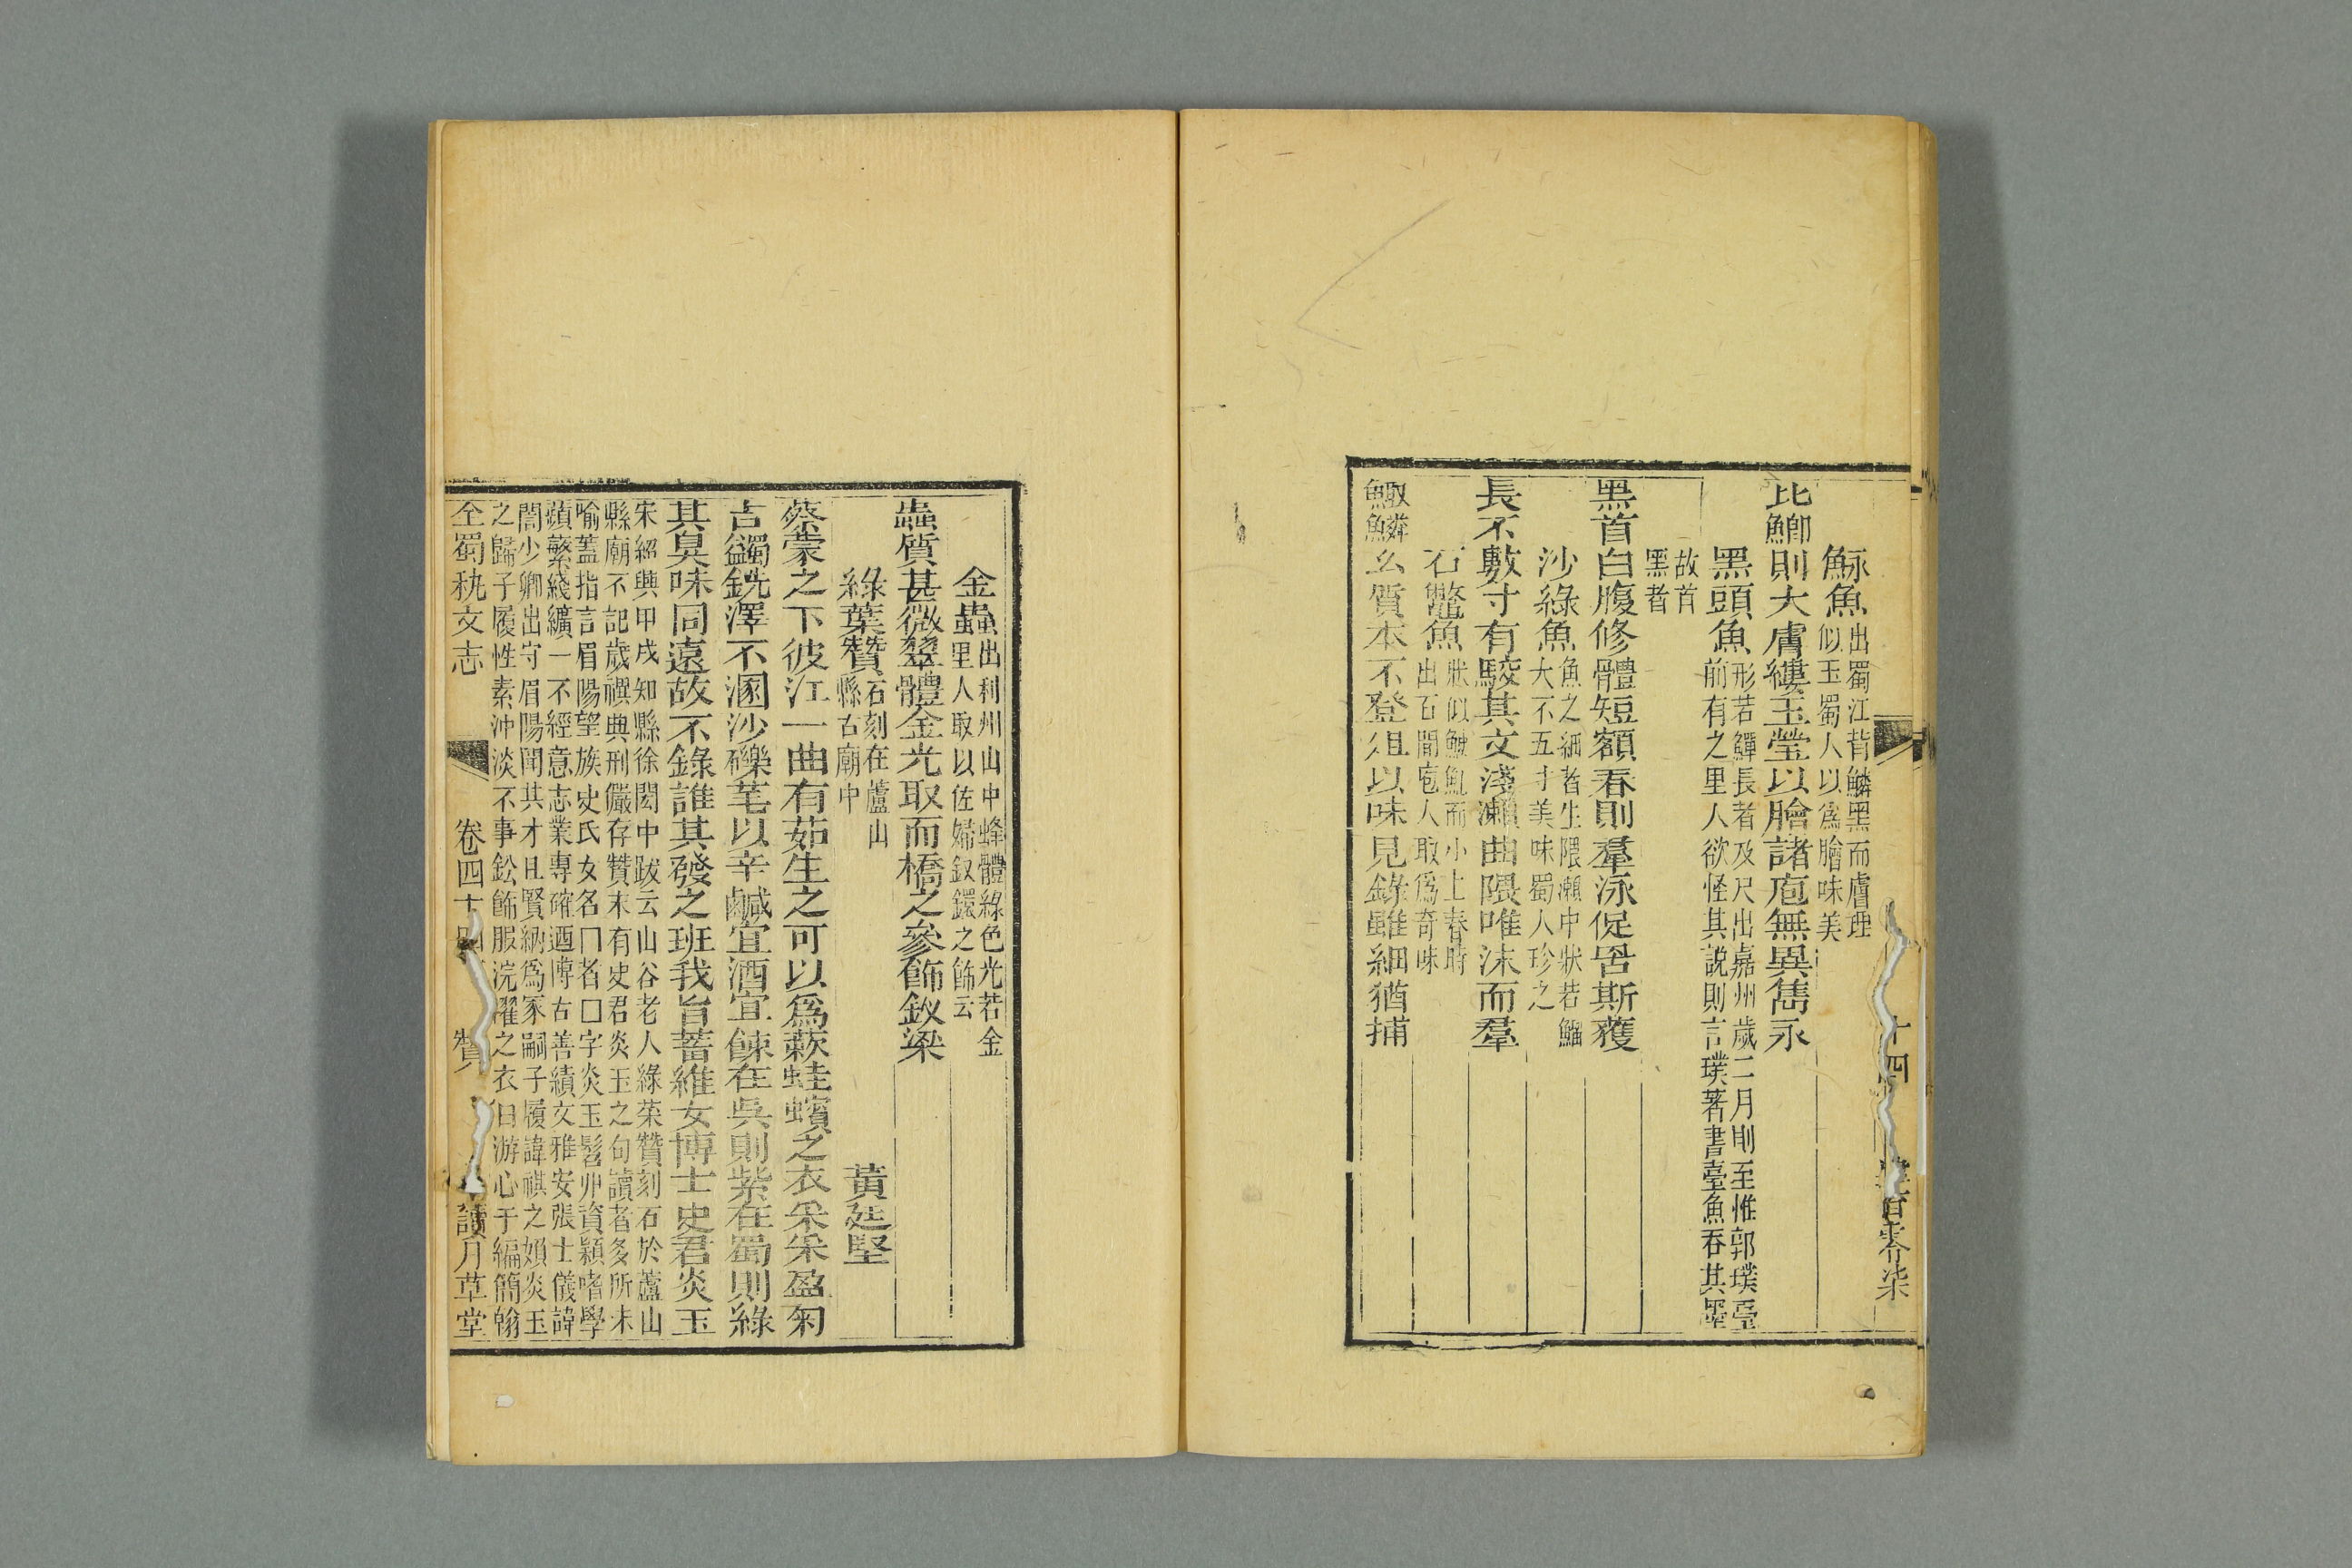 十四
零柒
䱹魚出蜀江背鱗黑而膚理
似玉蜀人以爲膾味美
比鯽則大膚縷玉瑩以膾諸庖無異雋永
黑頭魚形若鱓長者及尺出嘉州歲二月則至惟郭璞臺
前有之里人欲怪其說則言璞著書臺魚吞其墨
故首
黑者
黑首白腹修體短額春則羣泳促罟斯獲
沙綠魚魚之細者生隈瀨中狀若鰡
大不五寸美味蜀人珍之
長不數寸有駮其文淺瀨曲隈唯沫而羣
石鼈魚狀似魮魧而小上春時
出石間庖人取爲奇味
鯫鱗幺質本不登俎以味見錄雖細猶捕
金蟲出利州山中蜂體綠色光若金
里人取以佐婦釵鐶之飾云
蟲質甚微翠體金光取而橋之參飾釵梁
綠葉贊石刻在蘆山
縣古廟中
黃廷堅
蔡蒙之下彼江一曲有茹生之可以爲蔌蛙蠙之衣采采盈匊
吉蠲銑澤不溷沙礫芼以辛鹹宜酒宜餗在吳則紫在蜀則綠
其臭味同遠故不錄誰其發之班我旨蓄維女博士史君炎玉
宋紹興甲戌知縣徐閎中跋云山谷老人綠菜贊刻石於蘆山
縣廟不記歲禩典刑儼存贊末有史君炎玉之句讀者多所未
喻蓋指言眉陽望族史氏女名冂者囗字炎玉髫丱資穎嗜學
蘋蘩綫纊一不經意志業專確迺博古善績文雅安張士儀諱
誾少卿出守眉陽聞其才且賢納爲冢嗣子履諱祺之嬪炎玉
之歸子履性素沖淡不事鈆飾服浣濯之衣日游心于編簡翰
全蜀秇文志
卷四十
贊
讀月草堂